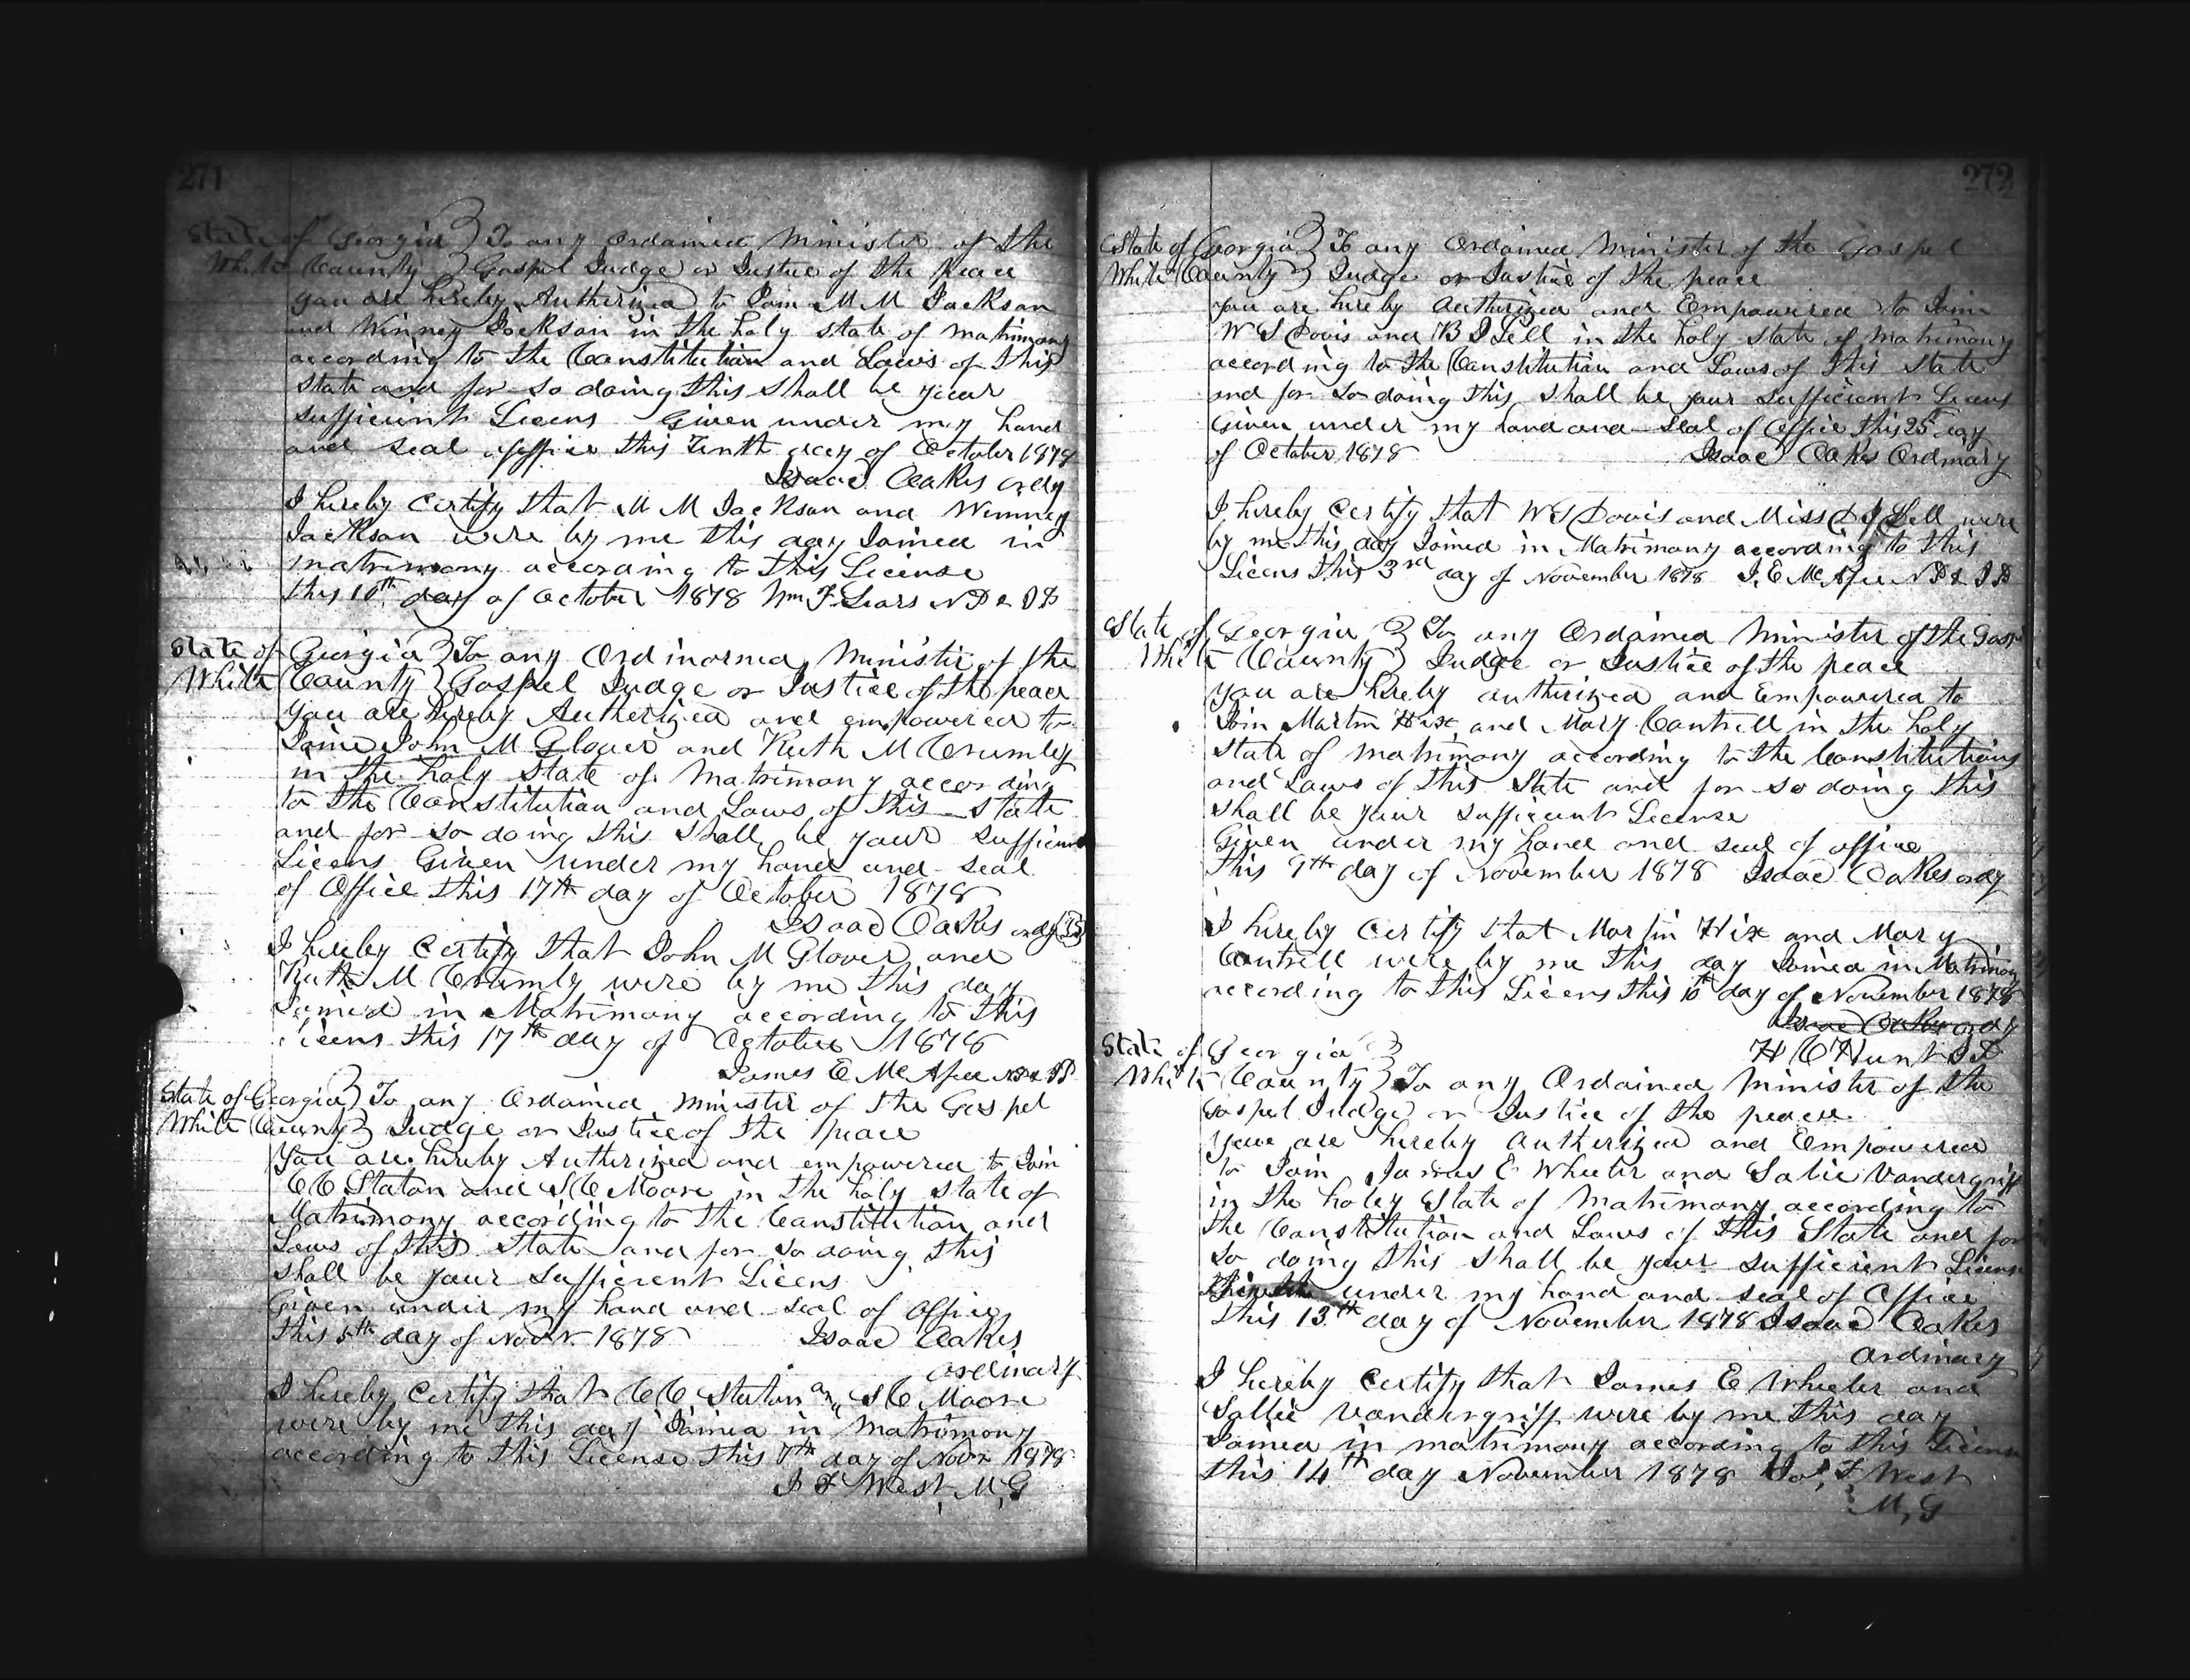 271
State of Georgia } To any Ordained Minister of the
White County } Gospel Judge or Justice of the peace
you are hereby Autherized to Join M M Jackson
and Winney Jackson in the holy state of matrimony
according to the Constitution and Laws of this
State and for so doing this shall be your
sufficient Licens Given under my hand
and seal office this Tenth day of October 1878
Isaac Oakes ordy
I hereby Certify that M M Jackson and Winney
Jackson were by me this day Joined in
matrimony according to this License
this 10th day of October 1878 Wm F Sears N P & J P
State of Georgia } To any Ordinorned Minister of the
White County } Gospel Judge or Justice of the peace
You are hereby Autherized and empowered to
Joine John M Glover and Ruth M Crumley
in the holy state of Matrimony according
to the Constitution and Laws of this State
and for so doing this shall be your sufficient
Licens Given under my hand and seal
of Office this 17th day of October 1878
Isaac Oakes ordy
I hereby Certify that John M Glover and
Ruth M Crumly were by me this day
Joined in Matrimony according to this
Licens this 17th day of October 1878
James E McAfee N P & J P
State of Georgia } To any Ordained Minister of the Gospel
White County } Judge or Justice of the peace
You are hereby Autherized and empowered to Join
C C Staton and S C Moore in the holy state of
Matrimony according to the Constitution and
Laws of this State and for so doing this
shall be your sufficient Licens
Given under my hand and seal of office
this 5th day of Novr. 1878 Isaac Oakes
ordinary
I hereby Certify that C C Staton and S C Moore
were by me this day Joined in Matrimony
according to this License this 7th day of Novr 1878
J F West M,G
272
State of Georgia } To any Ordained Minister of the Gospel
White County } Judge or Justice of the peace
you are hereby Autherized and Empowered to Join
W S Davis and B J Sell in the holy state of matrimony
according to the Constitution and Laws of this State
and for so doing this shall be your sufficient Licens
Given under my hand and seal of office this 25 day
of October 1878 Isaac Oakes Ordinary
I hereby Certify that W S Davis and Miss B J Sell were
by me this day Joined in Matrimony according to this
Licens this 3rd day of November 1878 J. E McAfee N P & J P
State of Georgia } To any Ordained Minister of the Gospl
White County } Judge or Justice of the peace
you are hereby autherized and Empowered to
Join Martin Hix and Mary Cantrell in the holy
state of matrimony according to the Constitutions
and Laws of this State and for so doing this
shall be your sufficient License
Given under my hand and seal of office
This 9th day of November 1878 Isaac Oakes ordy
I hereby Certify that Martin Hix and Mary
Cantrell were by me this day Joined in Matrimony
according to this Licens this 10th day of November 1878
Isaac Oakes ordy
State of Georgia } H C Hunt J P
White County } To any Ordained Minister of the
Gospel Judge or Justice of the peace.
You are hereby Autherized and Empowered
to Join James E Wheeler and Salie Vandergriff
in the holey State of Matrimony according to
the Constitution and Laws of this State and for
so doing this shall be your sufficient Licens
under my hand and seal of Office
This 13th day of November 1878 Isaac Oakes
Ordinary
I hereby Certify that James E Wheeler and
Sallie Vandergriff were by me this day
Joined in matrimony according to this License
this 14th day November 1878 J F West
M,G